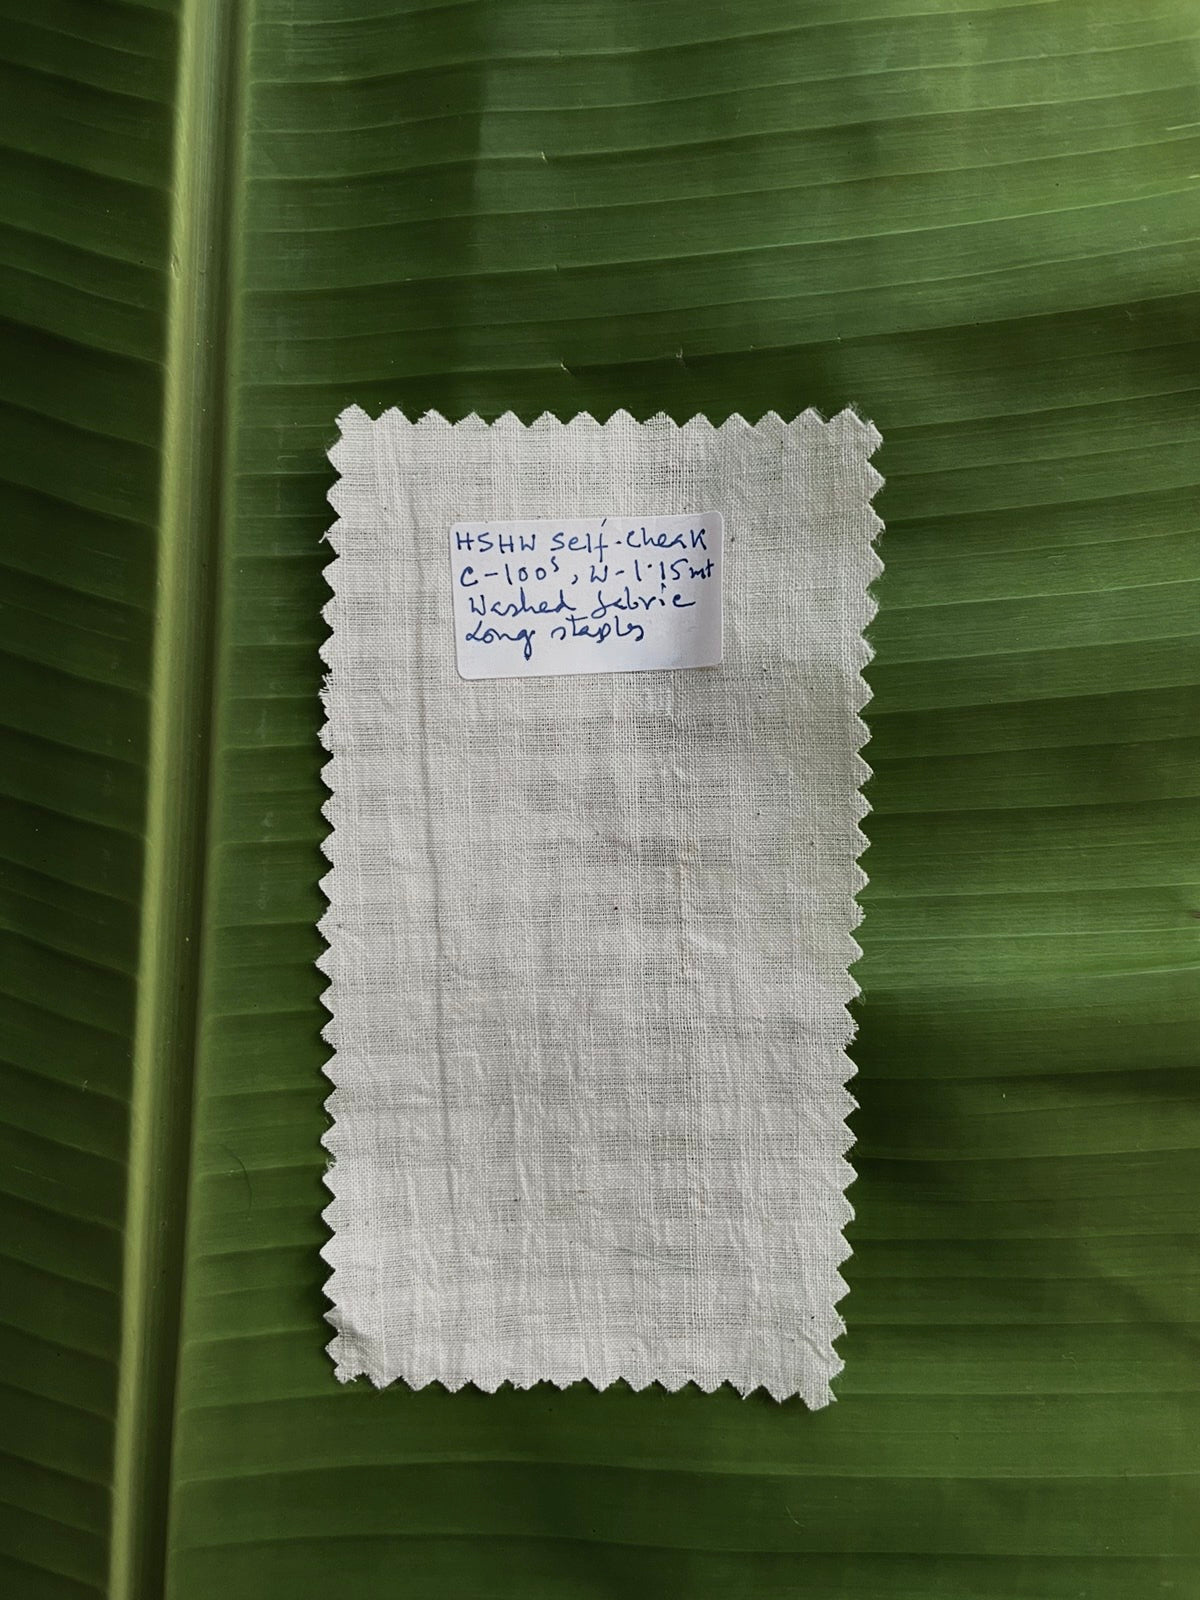 HSHW Self-Cheak
C-100s, W-1.15mt
Washed fabric
Long staples